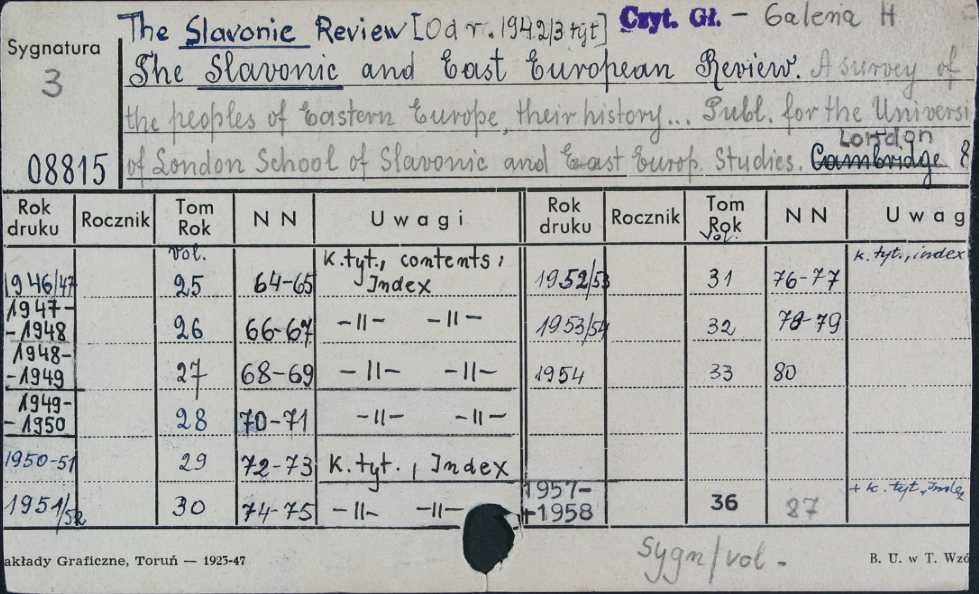 The Slavonic Review [Od r. 1942/3 tyt] Czyt. Gł. - Galeria H
Sygnatura
3
The Slavonic and East European Review. A survey of
the peoples of Eastern Europe, their history... Publ. for the Universi
London
08815 of London School of Slavonic and East Europ. Studies. Cambridge 8
Rok druku Rocznik Tom Rok NN Uwagi Rok druku Rocznik Tom Rok NN Uwag
vol. vol.
1946/47 25 64-65 K.tyt., contents, Index 1952/53 31 76-77 k. tyt., index
1947-1948 26 66-67 -II- -II- 1953/54 32 78-79
1948-1949 27 68-69 -II- -II- 1954 33 80
1949-1950 28 70-71 -II- -II-
1950-51 29 72-73 K.tyt., Index
1951/52 30 74-75 -II- -II- 1957-1958 36 87 + k. tyt,
akłady Graficzne, Toruń — 1925-47 Sygn/vol - B. U. w T. Wzó